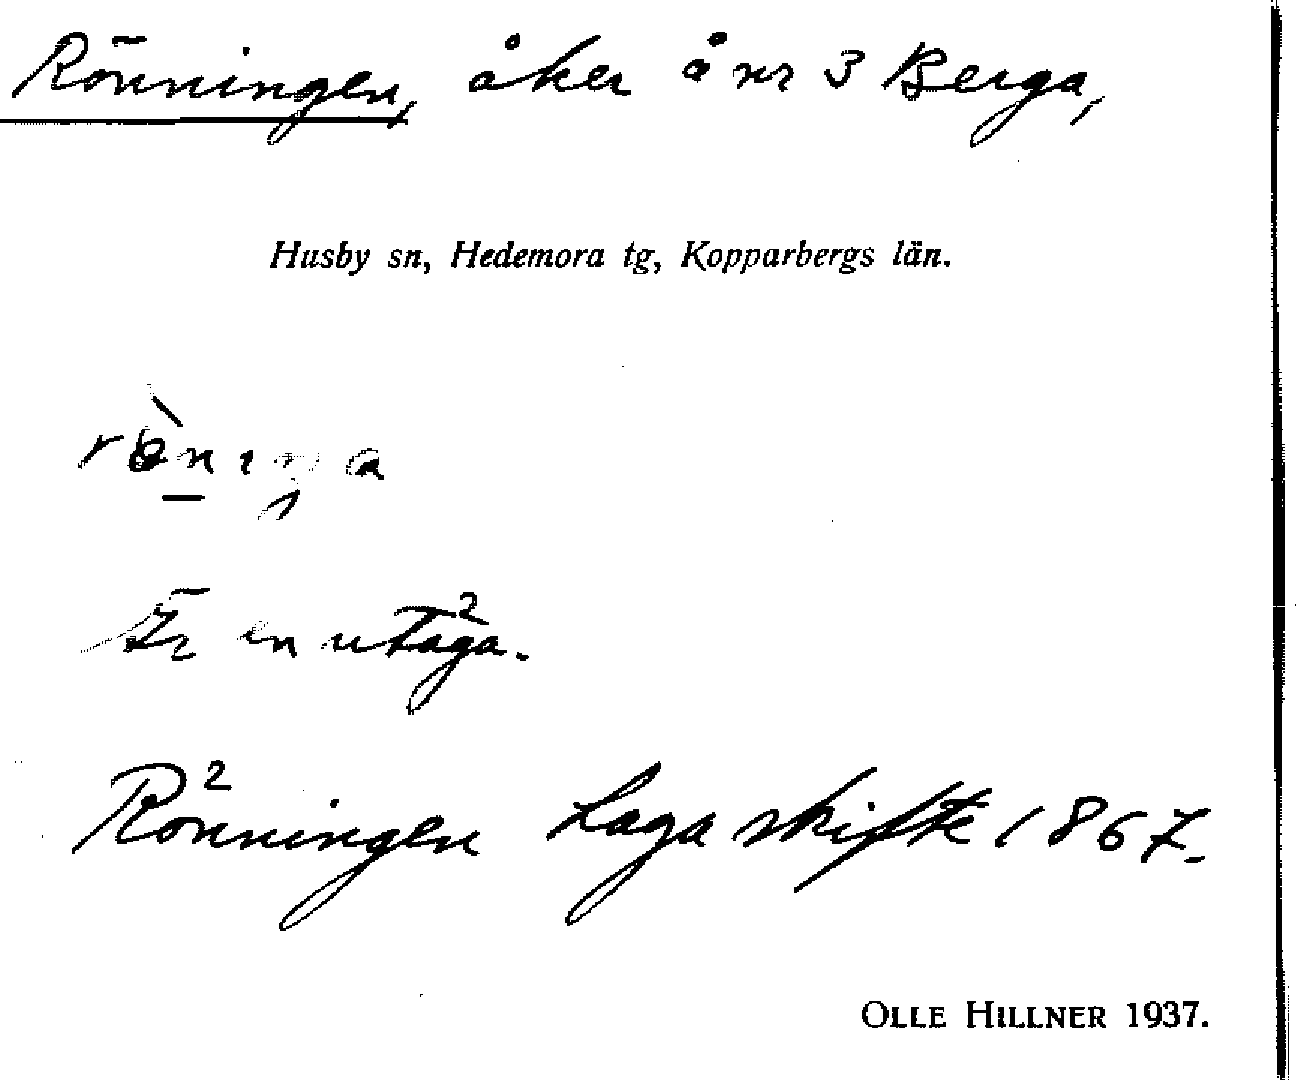 Rönningen, åker å nr 3 Berga,
Husby sn, Hedemora tg, Kopparbergs län.
Är en utäga.
Rönningen Laga skifte 1867.
OLLE HILLNER 1937.